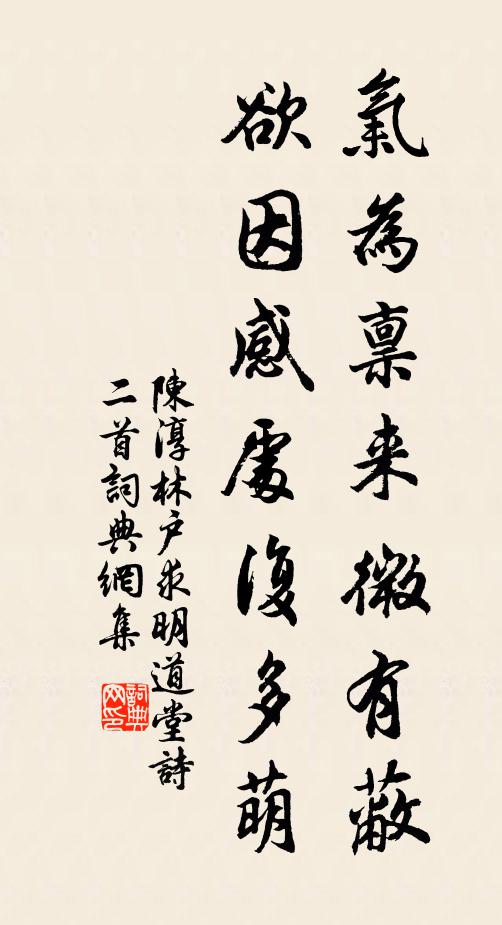 氣為禀来微有蔽
欲因感處復多萌
陳淳林户求明道堂詩
二首詞典網集
詞典
网印